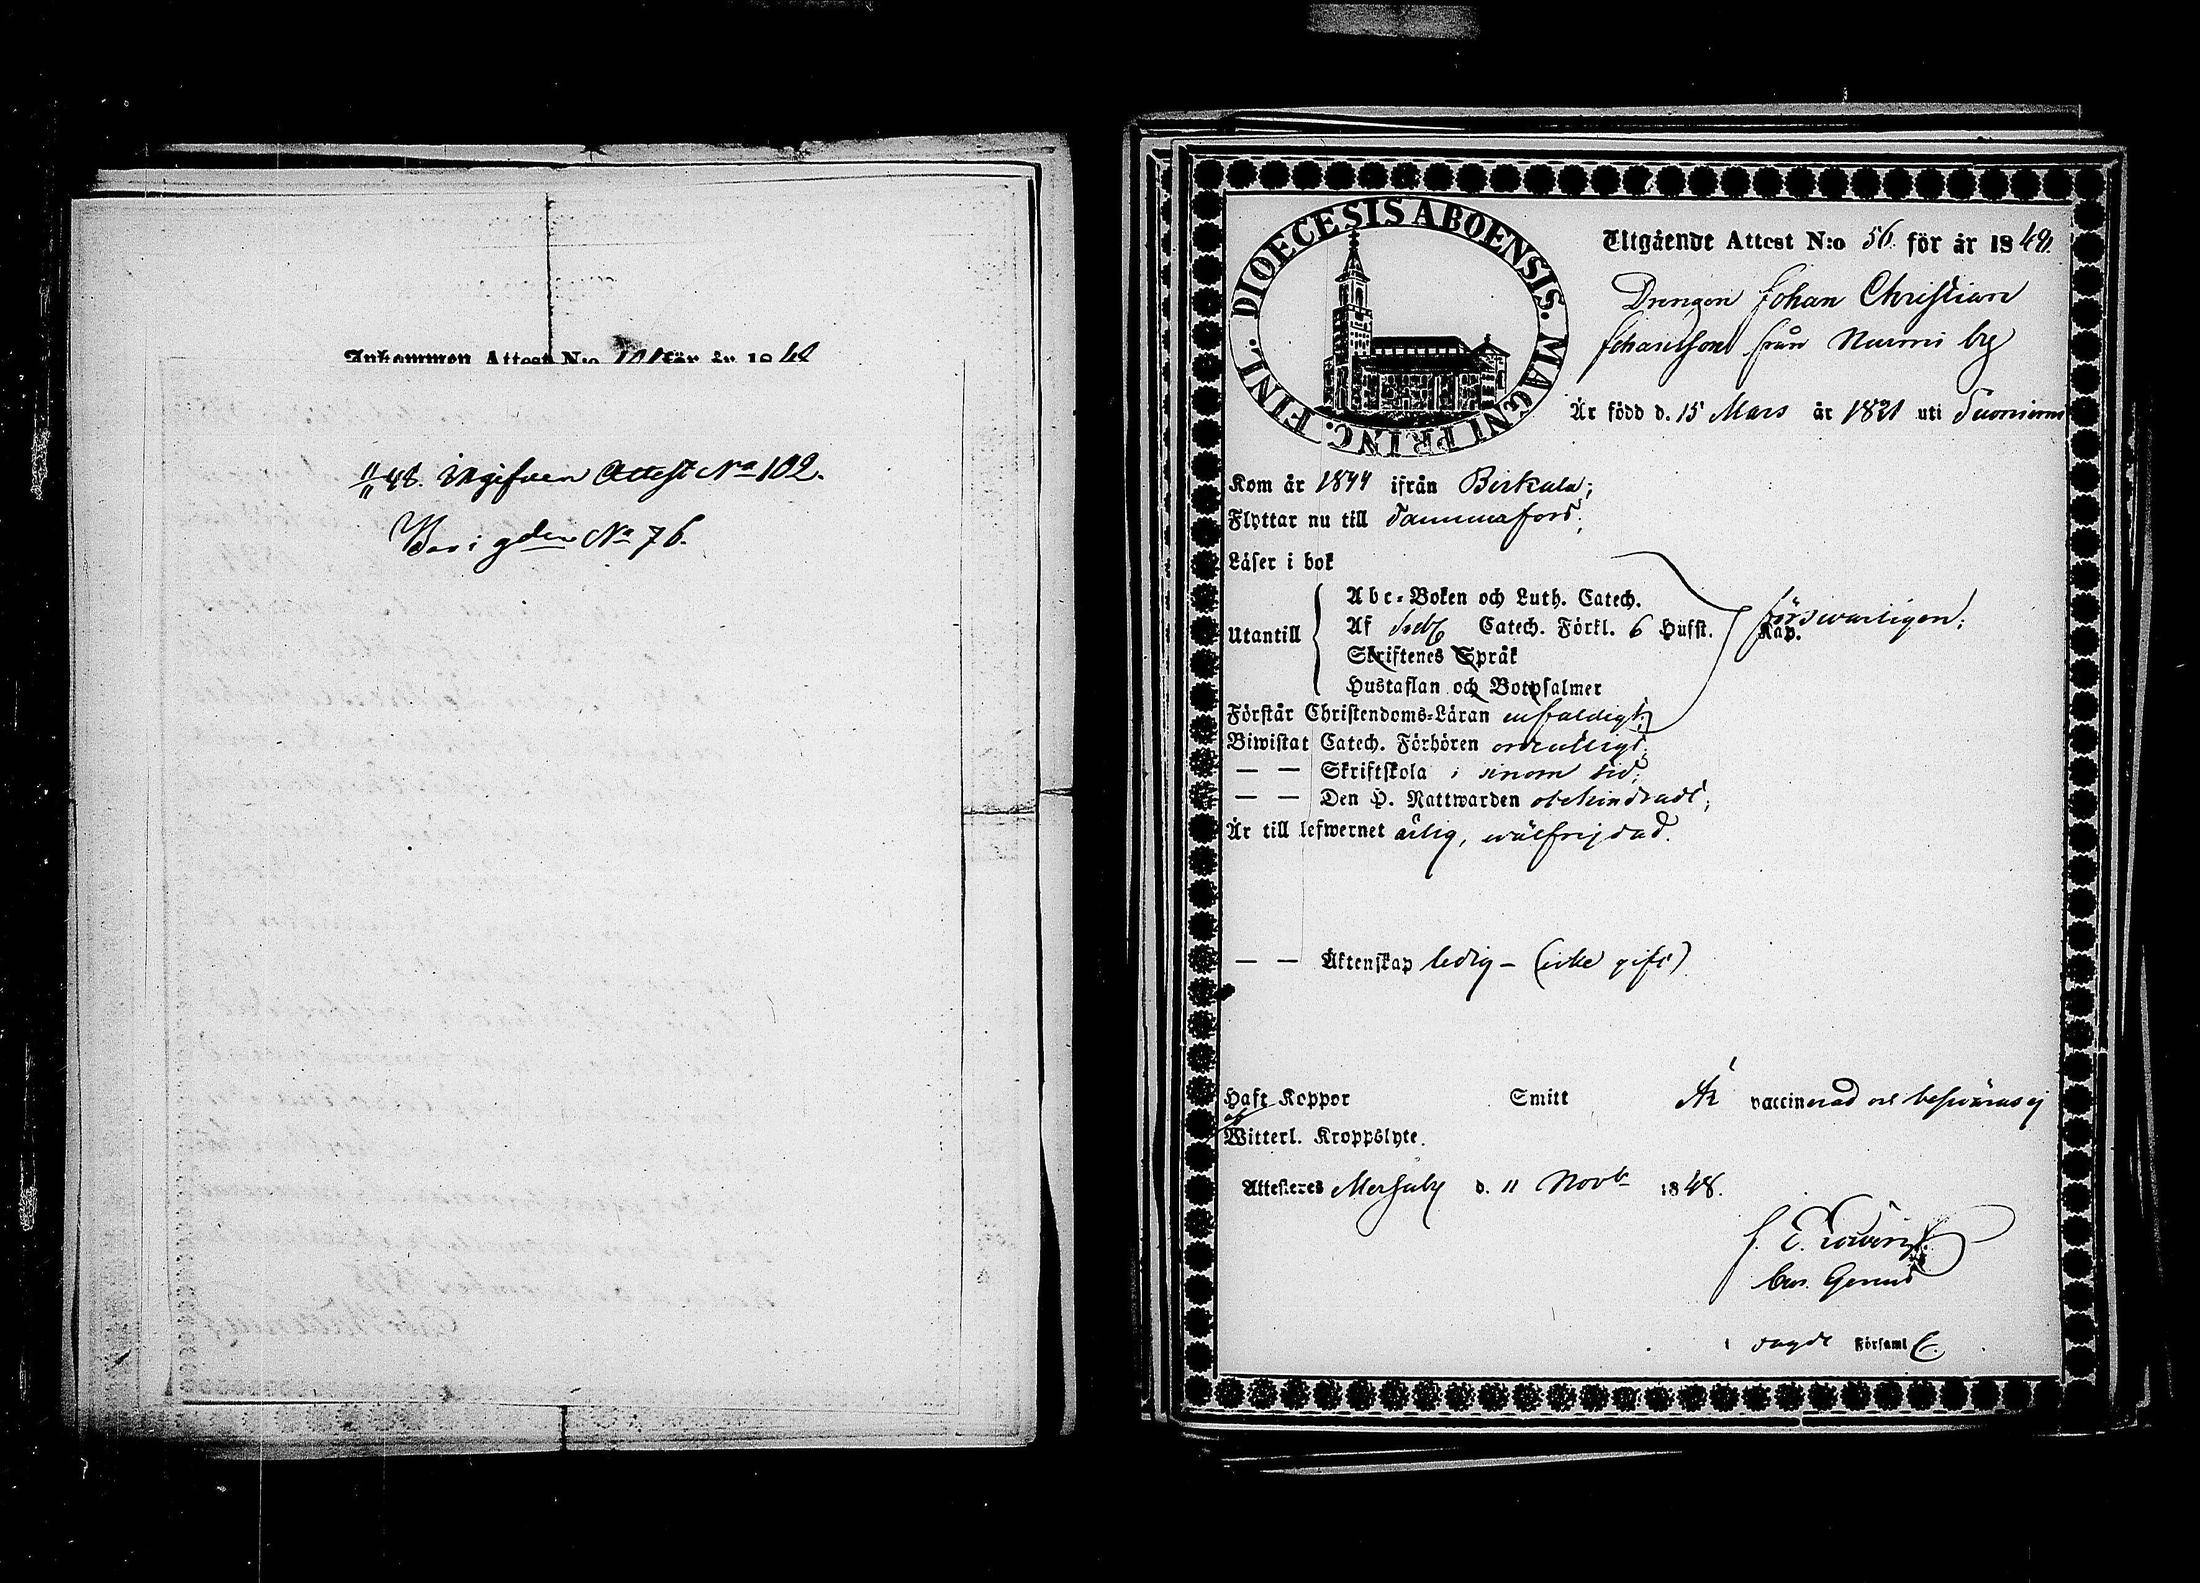 Ankommen Attest N:o 101 för år 1848
11/11 48. ingifven Attest No 102.
No 76.
DIOECESIS ABOENSIS. MAGNI PRINC. FINL.
Utgående Attest N:o 56. för år 1848.
Drengen Johan Christian
Johansson från Nurmi by
Är född d. 15 Mars år 1821 uti
Kom år 1844 ifrån Birkala;
Flyttar nu till Tammafors;
Läser i bok
Utantill
Abc-Boken och Luth. Catech.
Af Catech. Förkl. 6 Hufst. Kap. försvarligen;
Skriftenes Språk
Hustaflan och Botpsalmer
Förstår Christendoms-Läran enfaldigt;
Biwistat Catech. Förhören ordentligt;
— — Skriftskola i sinom tid;
— — Den H. Nattwarden obehindradt;
Är till lefwernet ärlig, wälfrejdad.
— — Äktenskap ledig – (icke gift)
Haft Koppor Smitt Är vaccinerad och besväras ej
af
Witterl. Kroppslyte.
Attesteras Messuby d. 11 Novb 1848.
J. E.
i sagde Församl